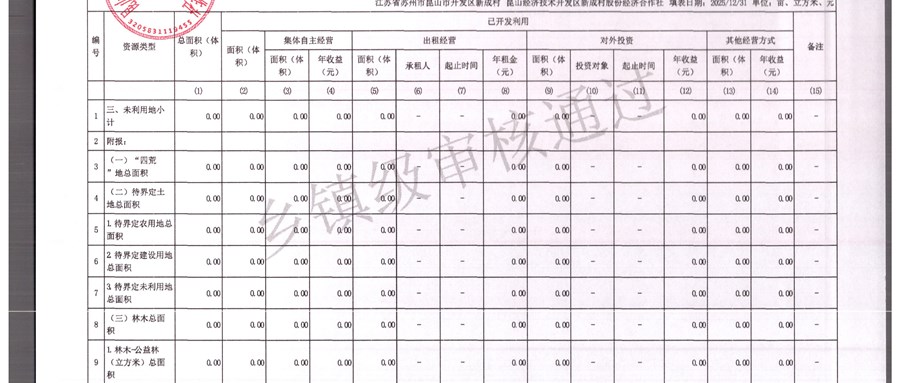 江苏省苏州市昆山市开发区新成村 昆山经济技术开发区新成村股份经济合作社 填表日期：2025/12/31 单位：亩、立方米、元
3205831110455
编号 资源类型 总面积（体积） 已开发利用 备注
面积（体积） 集体自主经营 出租经营 对外投资 其他经营方式
面积（体积） 年收益（元） 面积（体积） 承租人 起止时间 年租金（元） 面积（体积） 投资对象 起止时间 年收益（元） 面积（体积） 年收益（元）
(1) (2) (3) (4) (5) (6) (7) (8) (9) (10) (11) (12) (13) (14) (15)
1 三、未利用地小计 0.00 0.00 0.00 0.00 0.00 － － 0.00 0.00 － － 0.00 0.00 0.00
2 附报：
3 （一）“四荒”地总面积 0.00 0.00 0.00 0.00 0.00 － － 0.00 0.00 － － 0.00 0.00 0.00
4 （二）待界定土地总面积 0.00 0.00 0.00 0.00 0.00 － － 0.00 0.00 － － 0.00 0.00 0.00
5 1.待界定农用地总面积 0.00 0.00 0.00 0.00 0.00 － － 0.00 0.00 － － 0.00 0.00 0.00
6 2.待界定建设用地总面积 0.00 0.00 0.00 0.00 0.00 － － 0.00 0.00 － － 0.00 0.00 0.00
7 3.待界定未利用地总面积 0.00 0.00 0.00 0.00 0.00 － － 0.00 0.00 － － 0.00 0.00 0.00
8 （三）林木总面积 0.00 0.00 0.00 0.00 0.00 － － 0.00 0.00 － － 0.00 0.00 0.00
9 1.林木-公益林（立方米）总面积 0.00 0.00 0.00 0.00 0.00 － － 0.00 0.00 － － 0.00 0.00 0.00
乡镇级审核通过